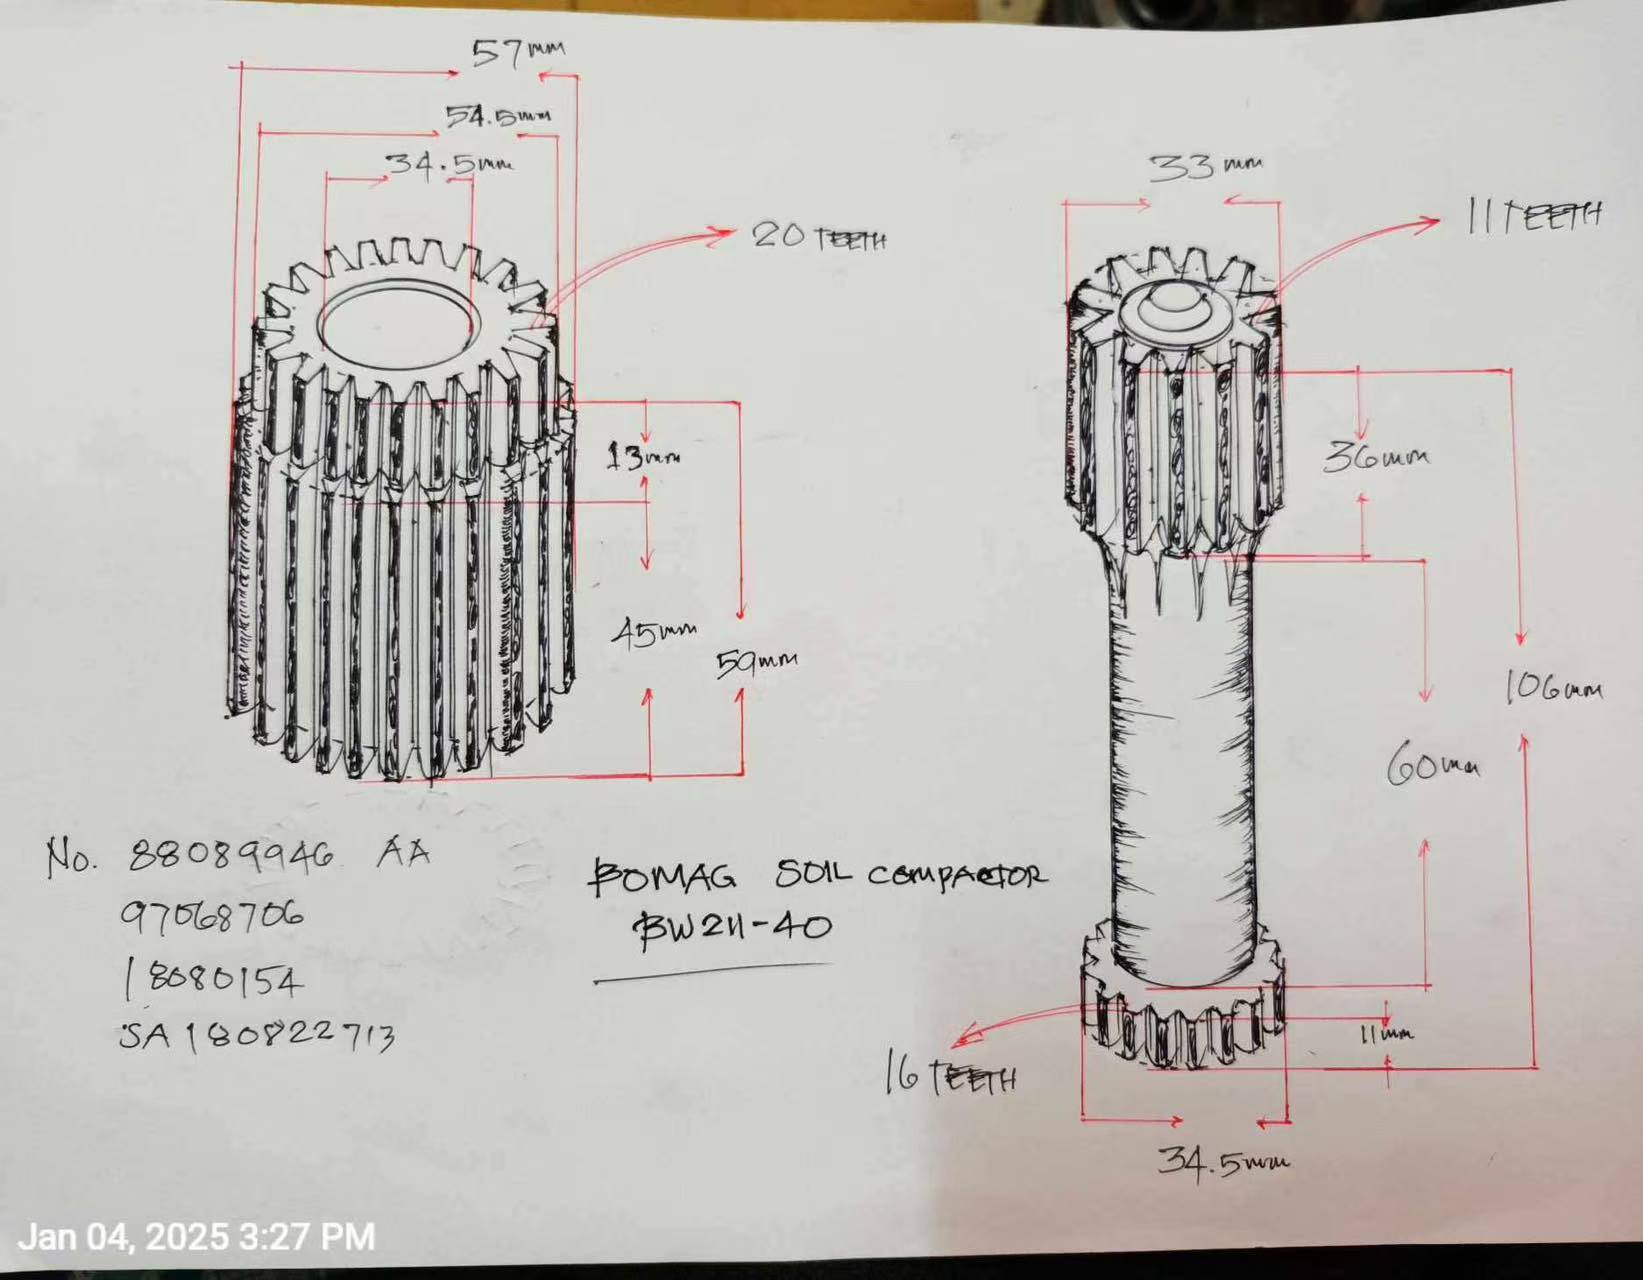 57mm
54.5mm
34.5mm
20 TEETH
13mm
45mm
59mm
33mm
11 TEETH
36mm
106mm
60mm
11mm
16 TEETH
34.5mm
No. 88089946 AA
97068706
18080154
SA180822713
BOMAG SOIL COMPACTOR
BW211-40
Jan 04, 2025 3:27 PM